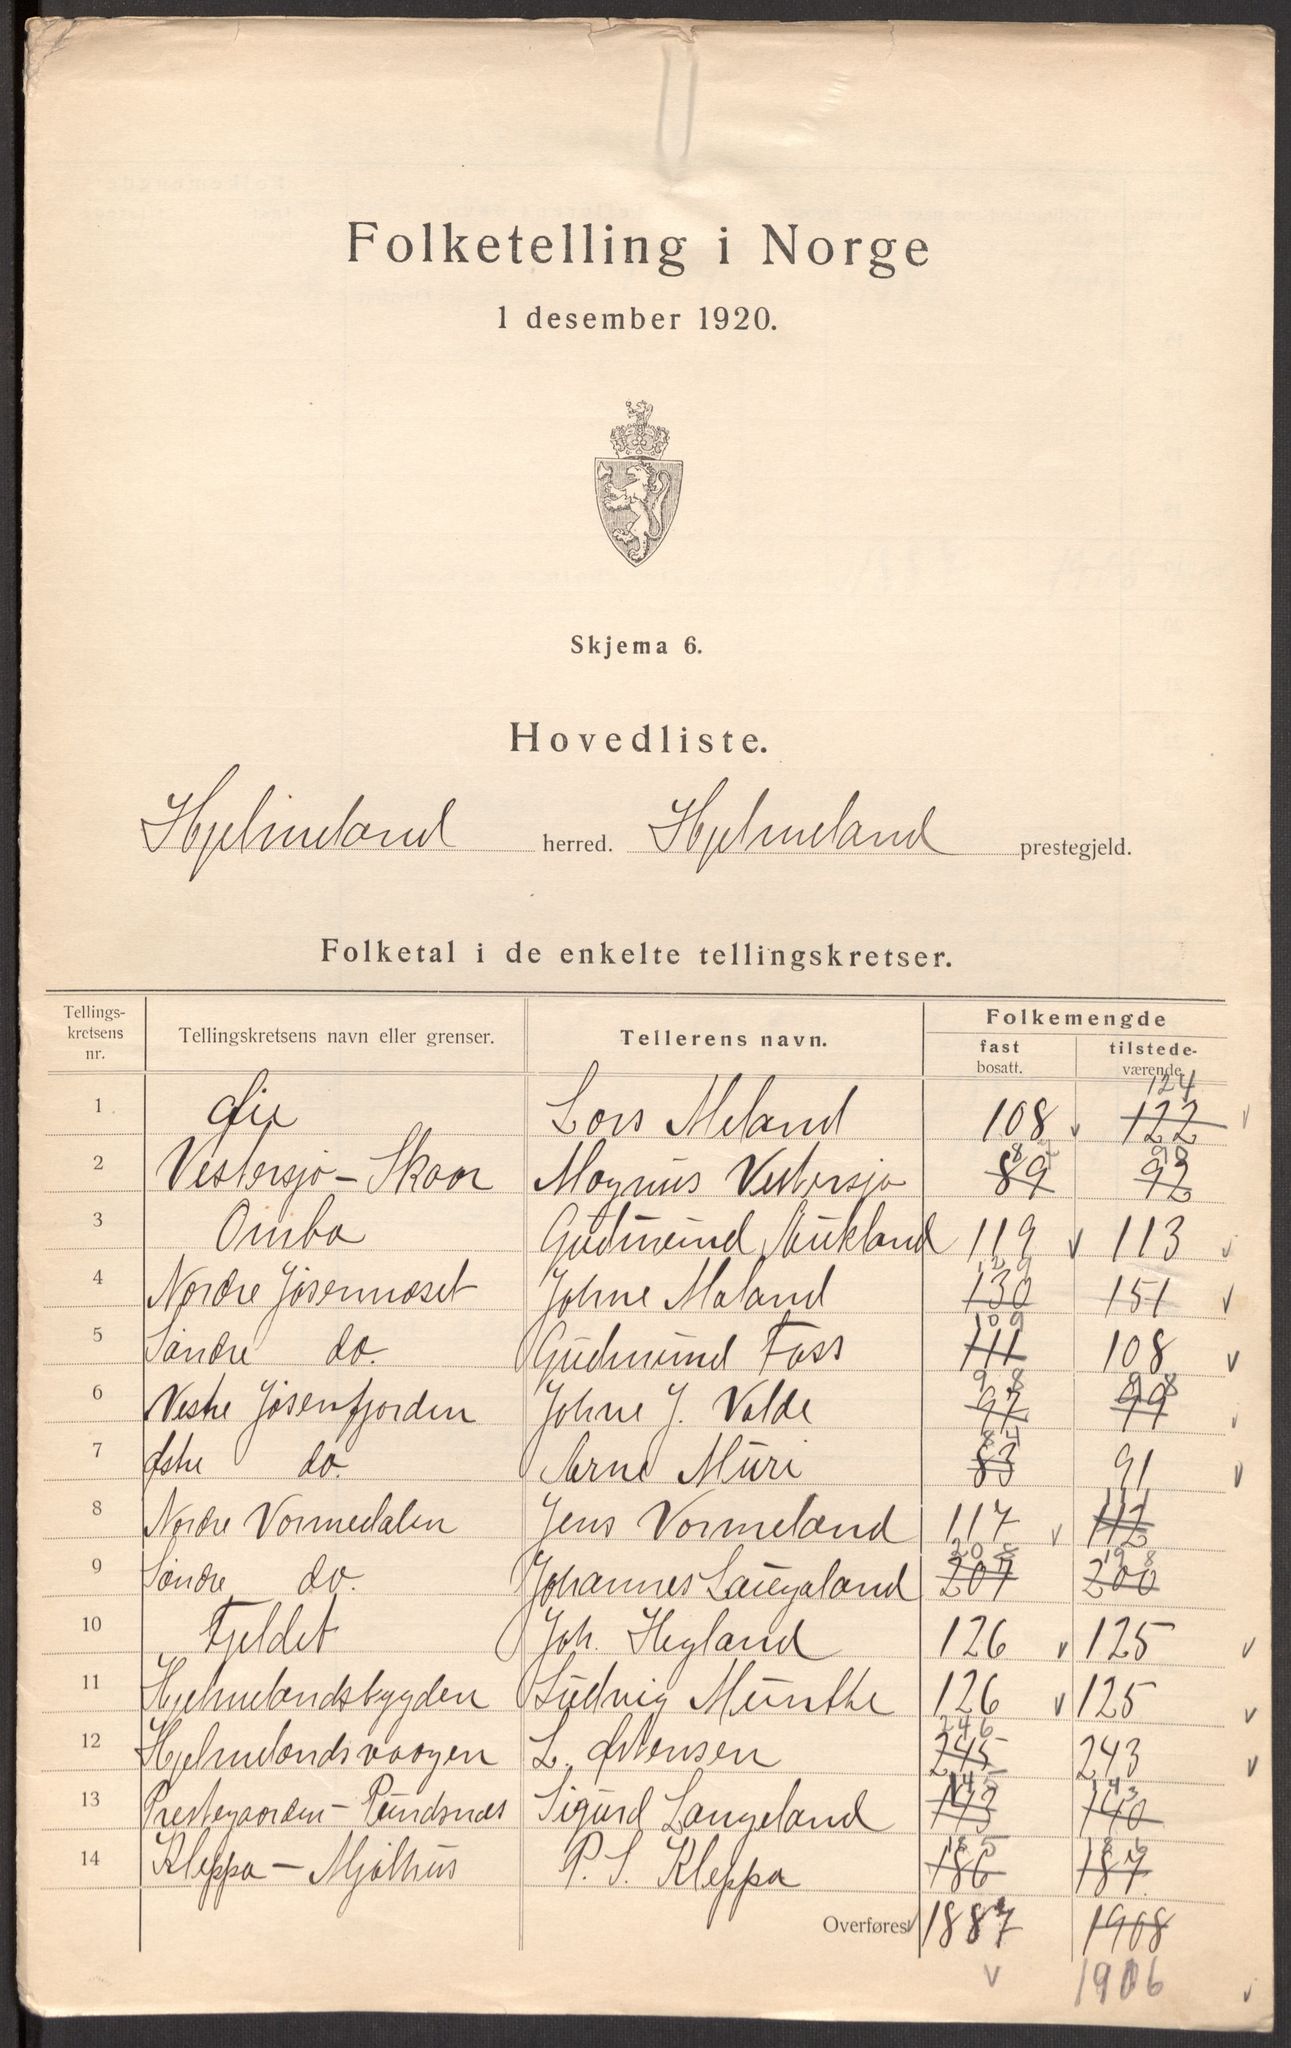 Folketelling i Norge
1 desember 1920.
Skjema 6.
Hovedliste.
Hjelmeland herred. Hjelmeland prestegjeld.
Folketal i de enkelte tellingskretser.
Tellings-
kretsens
nr.
Tellingskretsens navn eller grenser.
Tellerens navn.
Folkemengde
fast
bosatt.
tilstede-
værende
124
1 Øie Lars Meland 108 122
87 90
2 Vestersjø - Skaar Magnus Vestersjø 89 92
3 Ombo Gudmund Aukland 119 113
129
4 Nordre Jøsenneset Johne Maland 130 151
109
5 Søndre do. Gudmund Foss 111 108
98 98
6 Vestre Jøsenfjorden Johne J. Valde 97 99
84
7 Østre do. Arne Muri 83 91
111
8 Nordre Vormedalen Jens Vormeland 117 112
208 198
9 Søndre do. Johannes Laugaland 207 200
10 Fjeldet Joh. Hegland 126 125
11 Hjelmelandsbygden Ludvig Munthe 126 125
246
12 Hjelmelandsvaagen L. Østensen 245 243
145 143
13 Prestegaarden - Pundsnes Sigurd Langeland 143 140
185 186
14 Kleppa - Mjølhus P. S. Kleppa 186 187
Overføres 1887 1908
1906